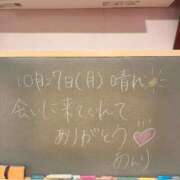 10月27日(月) 晴れ
会いに来てくれて
ありがとう
めんり